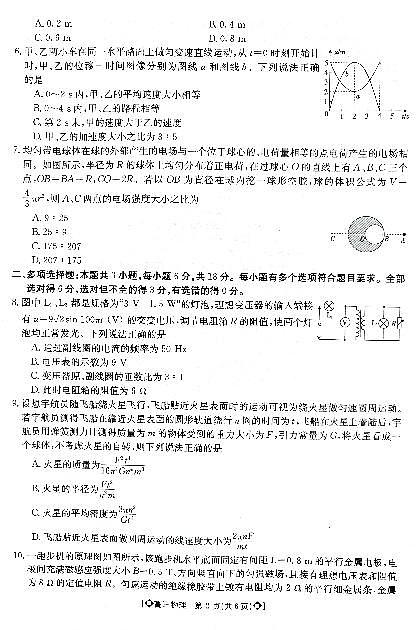 A. 0. 2 m B. 0. 4 m
C. 0. 6 m D. 0. 8 m
6. 甲、乙两小车在同一水平路面上做匀变速直线运动,从 t=0 时刻开始计
时,甲、乙的位移－时间图像分别为图线 a 和图线 b。下列说法正确
的是
A. 0~2 s 内,甲、乙的平均速度大小相等
B. 0~4 s 内,甲、乙的路程相等
C. 第 2 s 末,甲的速度大于乙的速度
D. 甲、乙的加速度大小之比为 3 : 5
7. 均匀带电球体在球的外部产生的电场与一个位于球心的、电荷量相等的点电荷产生的电场相
同。如图所示,半径为 R 的球体上均匀分布着正电荷,在过球心 O 的直线上有 A、B、C 三个
点,OB=BA=R,CO=2R。若以 OB 为直径在球内挖一球形空腔,球的体积公式为 V=
4/3 πr³,则 A、C 两点的电场强度大小之比为
A. 9 : 25
B. 25 : 9
C. 175 : 207
D. 207 : 175
二、多项选择题:本题共 3 小题,每小题 6 分,共 18 分。每小题有多个选项符合题目要求。全部
选对得 6 分,选对但不全的得 3 分,有选错的得 0 分。
8. 图中 L₁、L₂ 都是规格为“3 V 1.5 W”的灯泡,理想变压器的输入端接
有 u=9√2sin 100πt (V) 的交变电压,调节电阻箱 R 的阻值,使两个灯
泡均正常发光。下列说法正确的是
A. 通过副线圈的电流的频率为 50 Hz
B. 电压表的示数为 9 V
C. 变压器原、副线圈的匝数比为 3 : 1
D. 此时电阻箱的阻值为 6 Ω
9. 设想宇航员随飞船绕火星飞行,飞船贴近火星表面时的运动可视为绕火星做匀速圆周运动。
若宇航员测得飞船在靠近火星表面的圆形轨道绕行 n 圈的时间为 t,飞船在火星上着陆后,宇
航员用弹簧测力计测得质量为 m 的物体受到的重力大小为 F,引力常量为 G,将火星看成一
个球体,不考虑火星的自转,则下列说法正确的是
A. 火星的质量为
B. 火星的半径为
C. 火星的平均密度为
D. 飞船贴近火星表面做圆周运动的线速度大小为
10. 一跑步机的原理图如图所示,该跑步机水平底面固定有间距 L=0. 8 m 的平行金属电极,电
极间充满磁感应强度大小 B=0. 5 T、方向竖直向下的匀强磁场,且接有理想电压表和阻值
为 8 Ω 的定值电阻 R。匀速运动的绝缘橡胶带上镀有电阻均为 2 Ω 的平行细金属条,金属
物理 第 3 页(共 6 页)